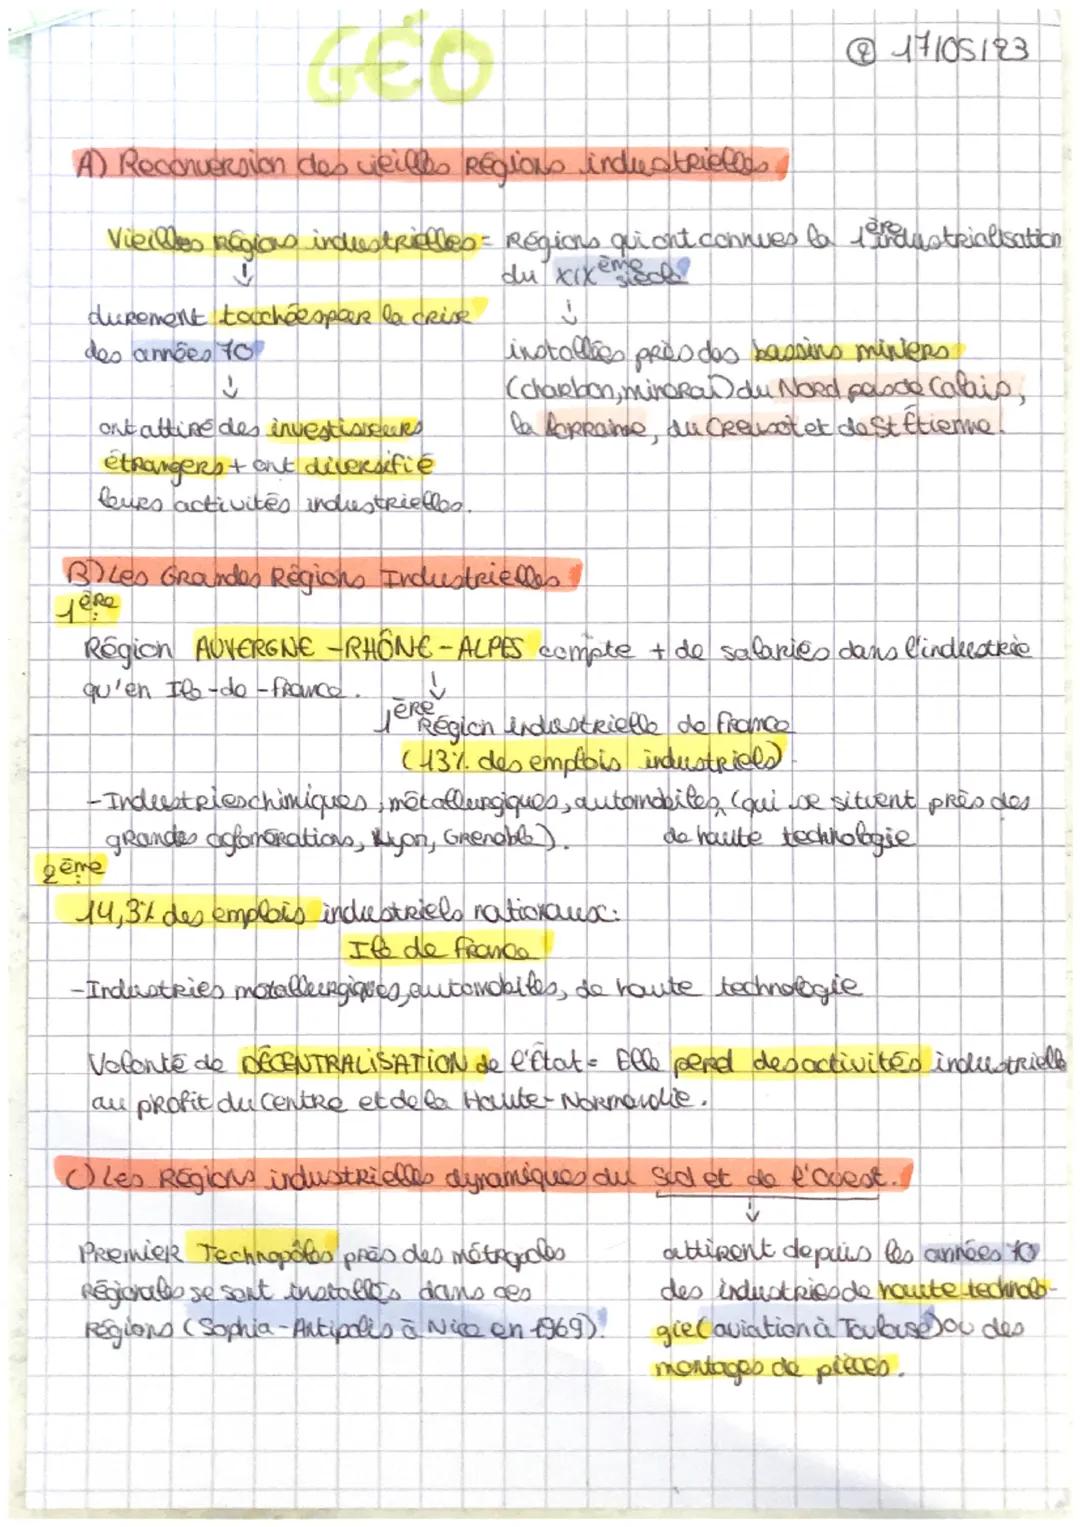 GÉO
② 17/05/23
A) Reconversion des vieilles Régions industrielles
Vieilles Régions industrielles = Régions qui ont connues la 1ère industrialisation
du XIXème siècle
↓
↓
durement touchées par la crise
des années 70
installées près des bassins miniers
↓
(charbon, minerai) du Nord pas de Calais,
ont attiré des investisseurs
la Lorraine, du Creusot et de St Étienne.
étrangers + ont diversifié
leurs activités industrielles.
B) Les Grandes Régions Industrielles
1ère :
Région AUVERGNE - RHÔNE - ALPES compte + de salariés dans l'industrie
qu'en Ile-de-France.
↓
1ère Région industrielle de France
(13% des emplois industriels)
- Industries chimiques, métallurgiques, automobiles, (qui se situent près des
de haute technologie
grandes aglomérations, Lyon, Grenoble).
2ème :
14,3% des emplois industriels nationaux :
Ile de France
- Industries métallurgiques, automobiles, de haute technologie
Volonté de DÉCENTRALISATION de l'État = Elle perd des activités industrielle
au profit du Centre et de la Haute-Normandie.
C) Les Régions industrielles dynamiques du Sud et de l'Ouest.
↓
Premier Technopôles près des métropoles
Régionales se sont installés dans ces
Régions (Sophia-Antipolis à Nice en 1969).
attirent depuis les années 70
des industries de haute technolo-
gie (aviation à Toulouse) ou des
montages de pièces.